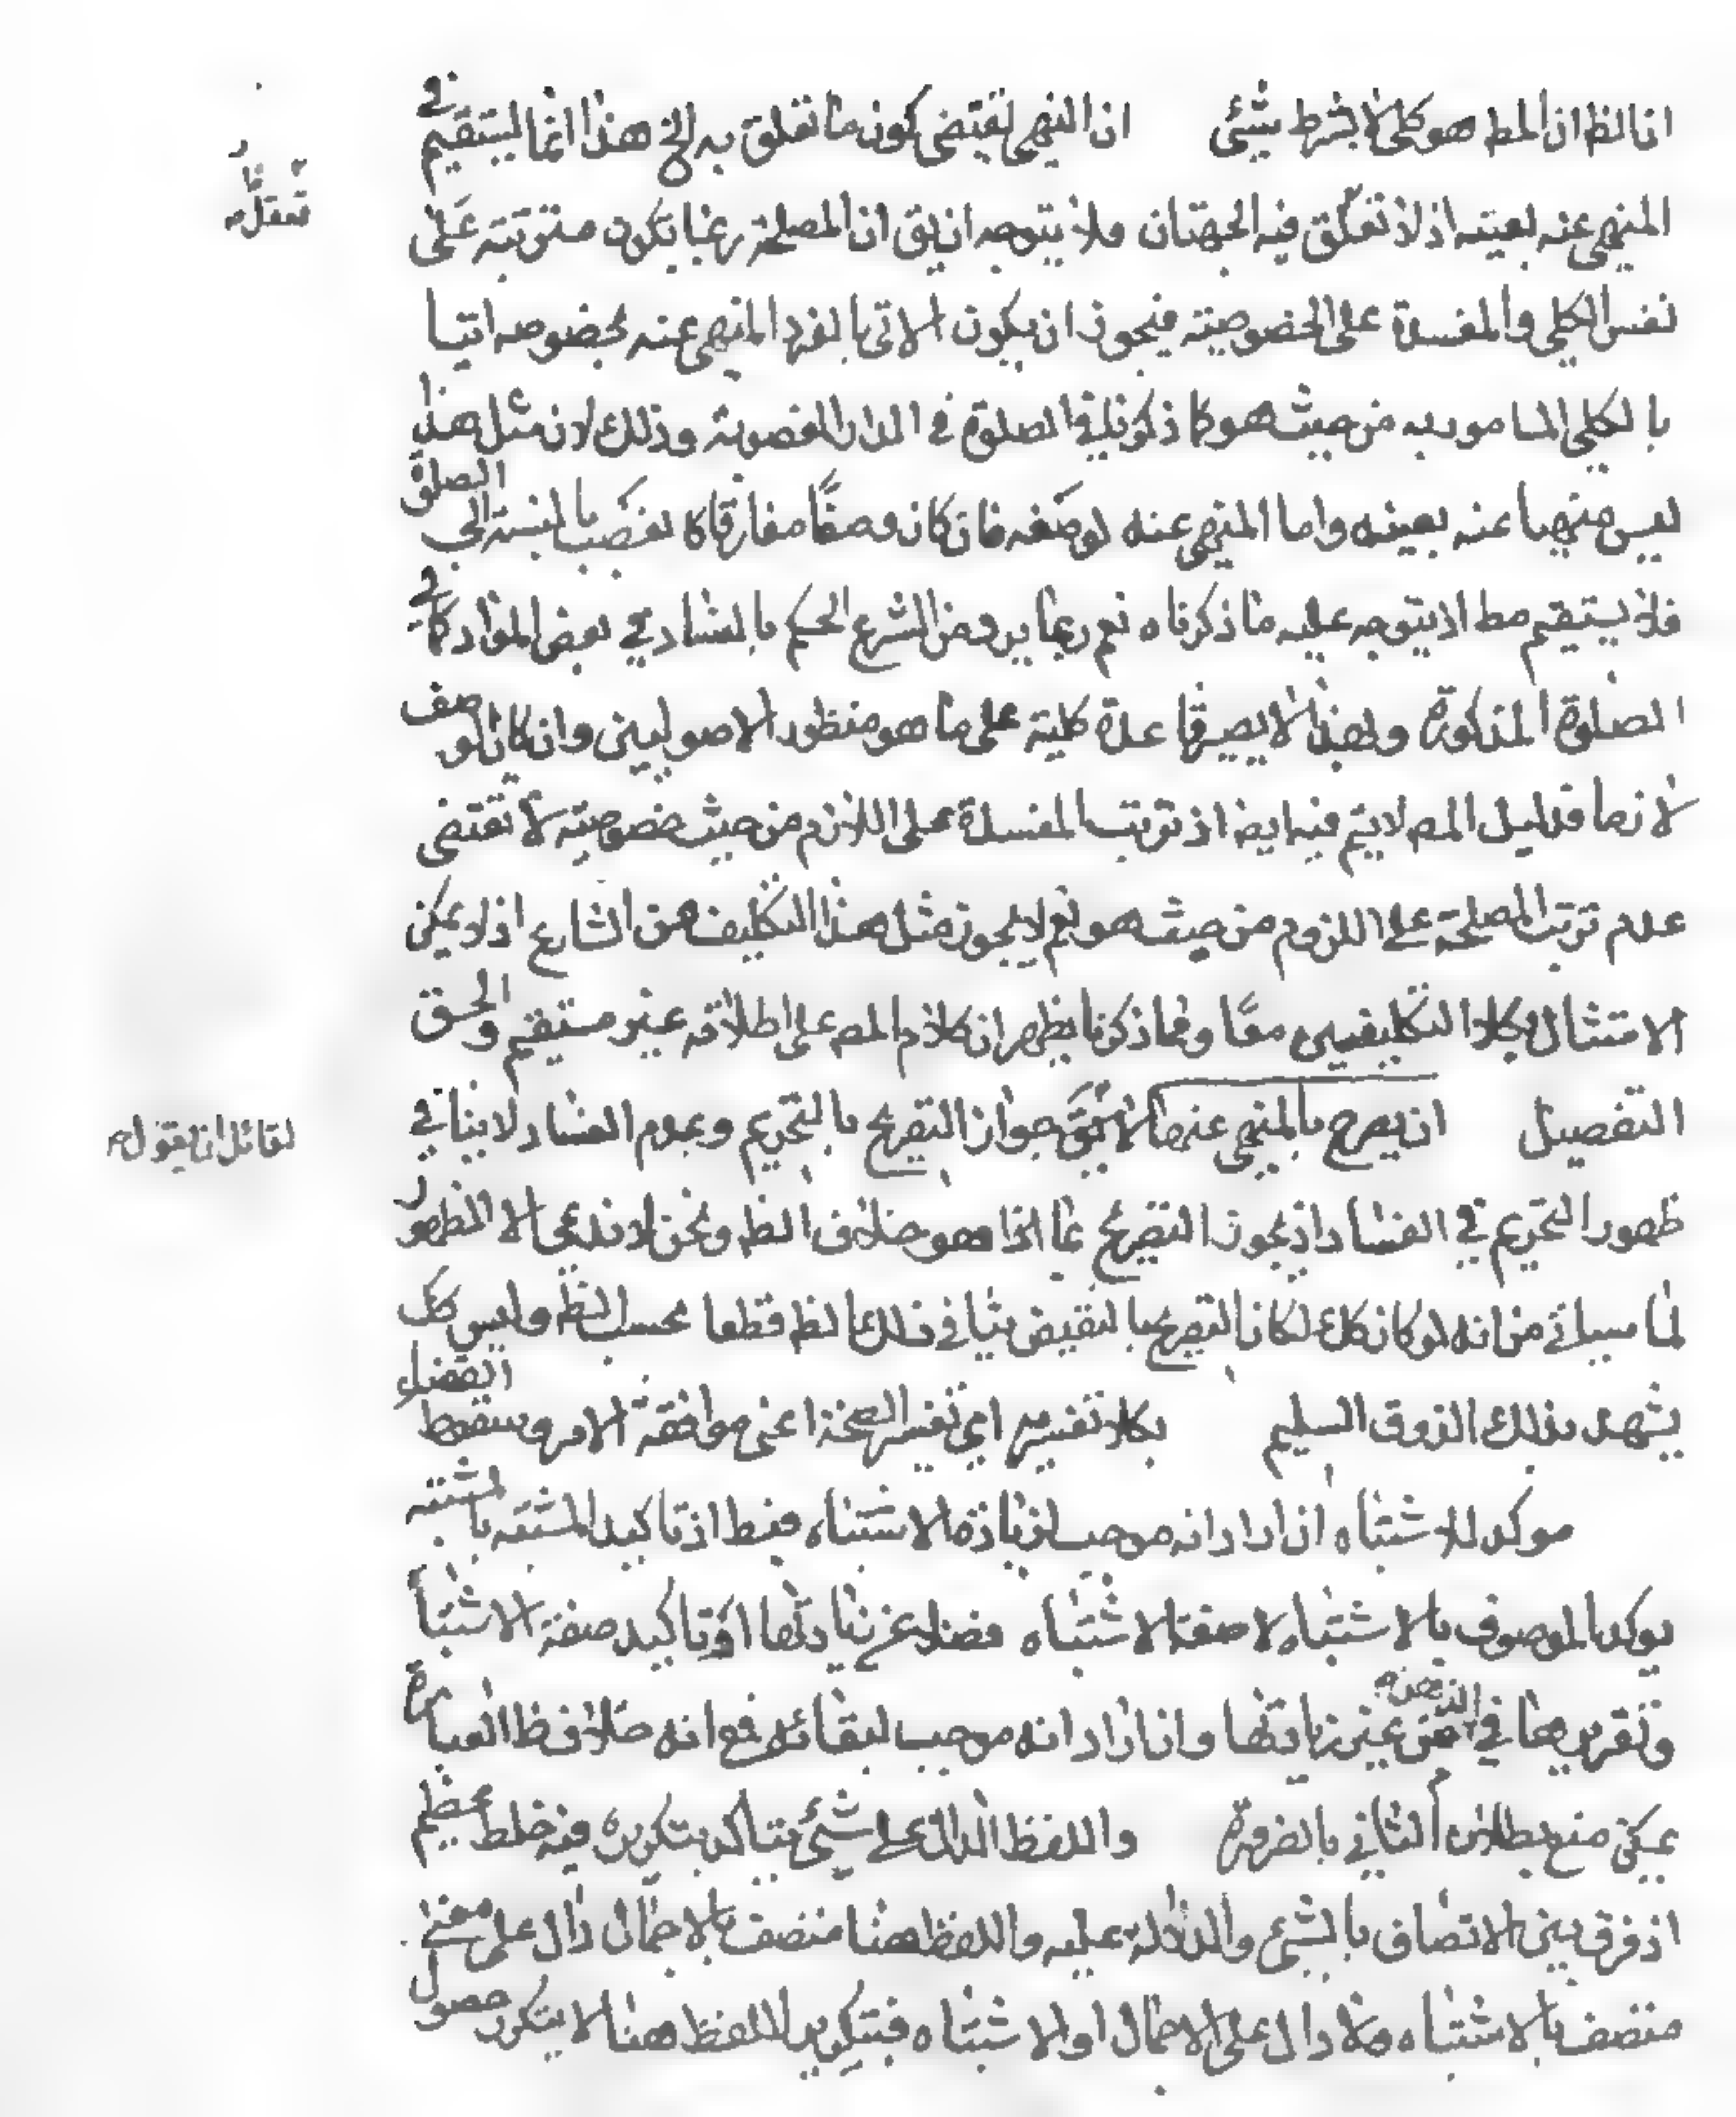 انا لظ ان المط هو كلى لا بشرط شيئى ان النهى يقتضى كون ما تعلق به الخ هذا انما يستقيم في
المنهى عنه بعينه اذ لا تعلق فيه الجهتان فلا يتوجه ان يق ان المصلحة ربما يكون مترتبة على
نفس الكلى والمفسدة على الخصوصية فيجوز ان يكون الاتى بالفرد المنهى عنه بخصوصه اتيا
بالكلى المامور به من حيث هو كما ذكر في الصلوة في الدار المغصوبة وذلك لان مثل هذا
ليس منهيا عنه بعينه واما المنهى عنه لوصفه فان كان وصفًا مفارقا كالغصب بالنسبة الى الصلوة
فلا يستقيم مط اذ يتوجه عليه ما ذكرناه نعم ربما يرد من الشرع الحكم بالفساد في بعض الموارد كما في
الصلوة المذكورة ولهذا لا يصير قاعدة كلية على ما هو منظور الاصوليين وان كان الوصف
لازما فدليل المصـ لا يتم فيه ايضا اذ ترتب المفسدة على اللازم من حيث خصوصيته لا تقتضى
عدم ترتب المصلحة على اللزوم من حيث هو نعم لا يجوز مثل هذا التكليف من الشارع اذ لا يمكن
الامتثال بكلا التكليفين معًا ومما ذكرنا يظهر ان كلام المصـ على اطلاقه غير مستقيم والحق
التفصيل ان يصرح بالمنهى عنها لا يق جواز التصريح بالتحريم وبعدم الفساد لا ينافي
ظهور التحريم في الفساد اذ يجوز التصريح بما هو خلاف الظ ونحن لا ندعى الا الظهور
لما سياتى من انه لو كان كك لكان التصريح بالنقيض منافي ذلك الظ قطعا بحسب الظ وليس كك
يشهد بذلك الذوق السليم بكلا تفسيريه اى تفسير الصحة اعنى موافقة الامر وسقوط القضاء
موكد للاشتباه ان اراد انه موجب لزيادة الاشتباه فغلط اذ تاكيد المشتبه بالمشتبه
يوكد الموصوف بالاشتباه لا صفة الاشتباه فضلا عن زيادتها او تاكيد صفة الاشتباه
وتقريرها في الذهن غير زيادتها وان اراد انه موجب لبقائه فمع انه خلاف ظ العبارة
يمكن منع بطلان الثانى بالضرورة واللفظ الدال على شيئ يتاكد بتكريره فيه خلط عظيم
اذ فرق بين الاتصاف بالشيئ والدلالة عليه واللفظ هنا متصف بالاجمال دال على معنى
متصف بالاشتباه ولا دال على الاجمال او الاشتباه فبتكرير اللفظ هنا لا يتكرر حصول
لقائل ان يقول